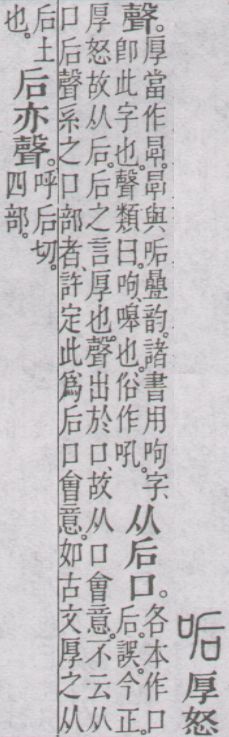 㖃 厚怒
聲。
厚當作㫗。㫗與㖃曡韵。諸書用呴字、
卽此字也。聲類曰。呴、嘷也。俗作吼。
从后口。
各本作口
后。誤。今正。
厚怒故从后。后之言厚也。聲出於口、故从口會意。不云从
口后聲系之口部者、許定此爲后口會意。如古文厚之从
后土
也。
后亦聲。
呼后切。
四部。